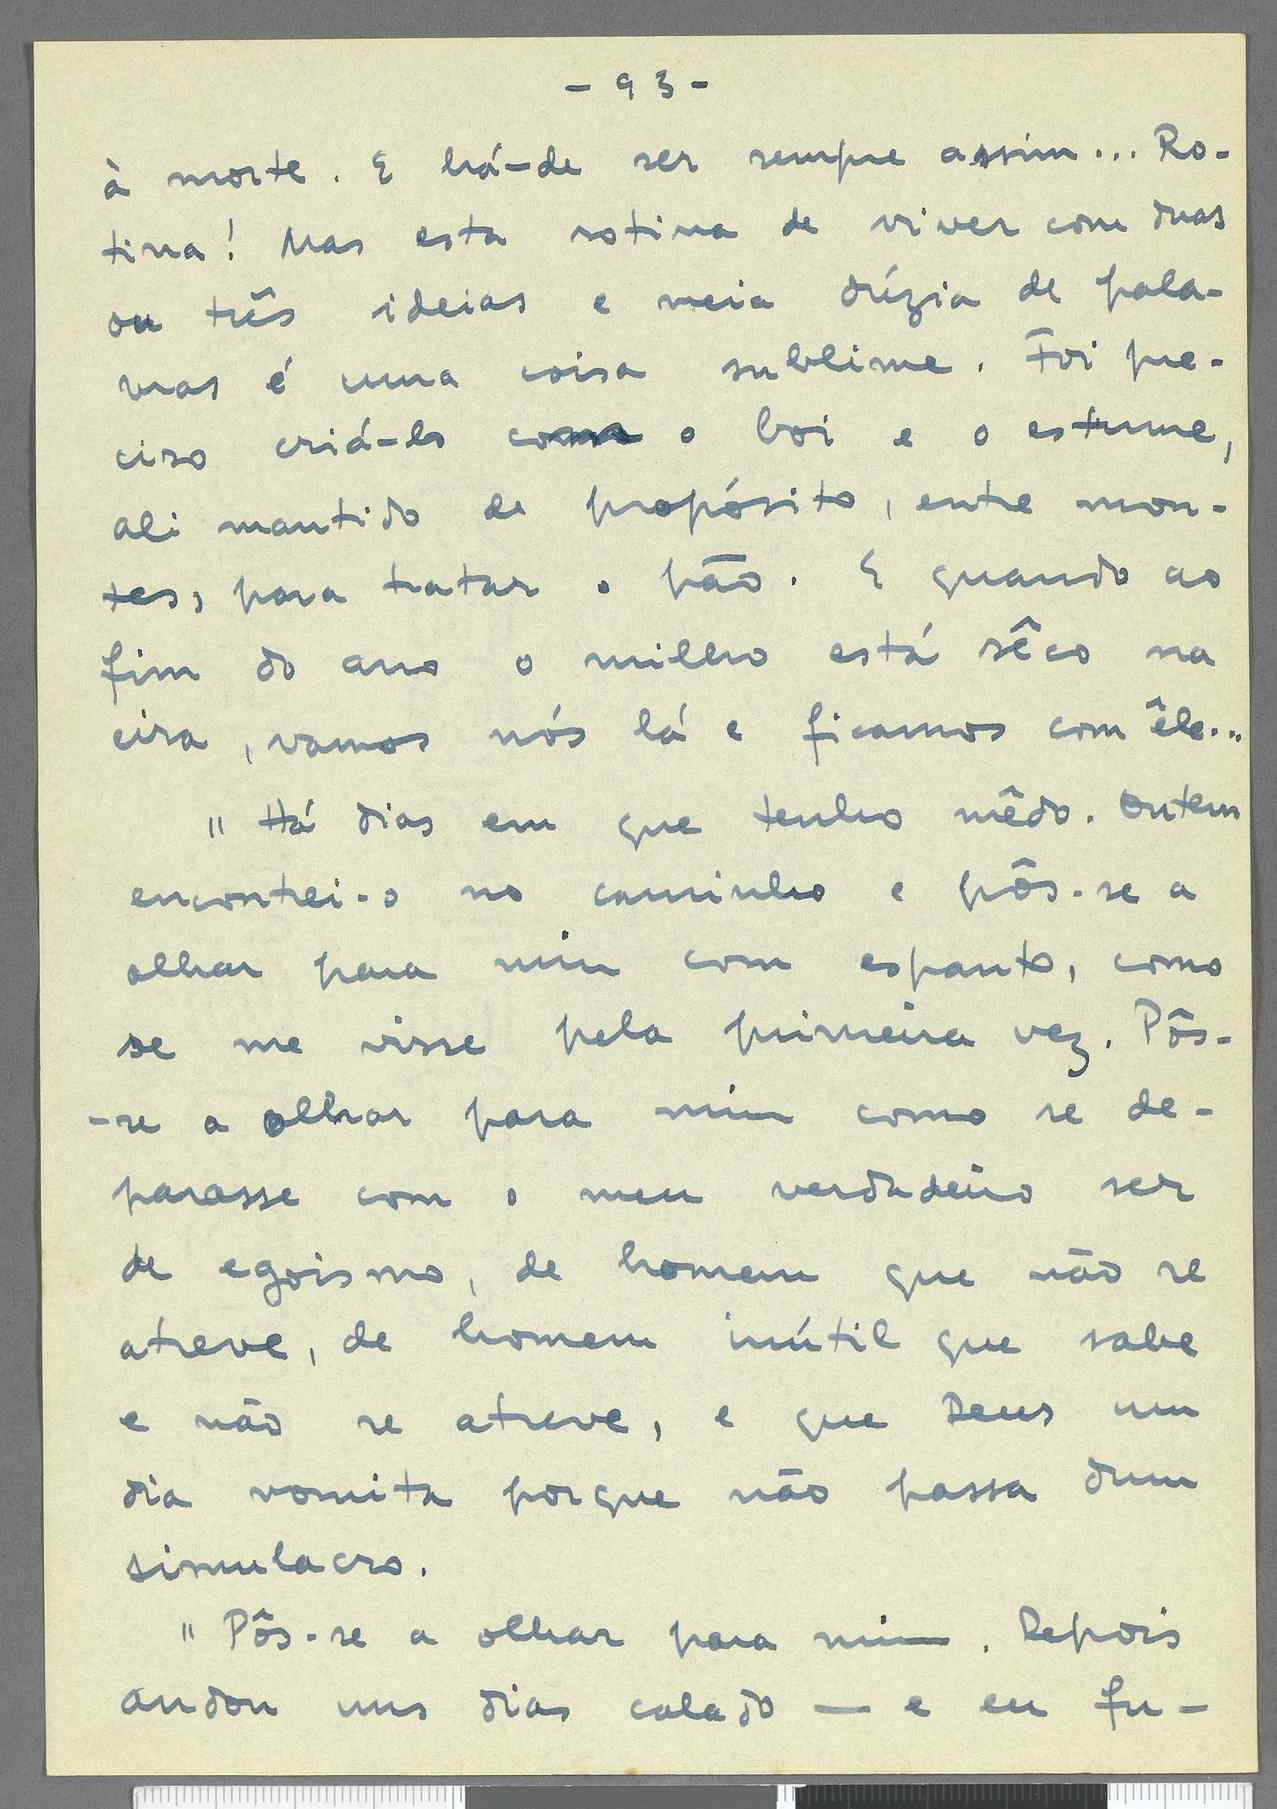 - 93 -
à morte. E há-de ser sempre assim... Ro-
tina! Mas esta rotina de viver com duas
ou três ideias e meia dúzia de pala-
vras é uma coisa sublime. Foi pre-
ciso criá-lo com o boi e o estrume,
ali mantido de propósito, entre mon-
tes, para tratar o pão. E quando ao
fim do ano o milho está sêco na
eira, vamos nós lá e ficamos com êle...
" Há dias em que tenho mêdo. Ontem
encontrei-o no caminho e pôs-se a
olhar para mim com espanto, como
se me visse pela primeira vez. Pôs-
-se a olhar para mim como se de-
parasse com o meu verdadeiro ser
de egoismo, de homem que não se
atreve, de homem inútil que sabe
e não se atreve, e que Deus um
dia vomita porque não passa dum
simulacro.
" Pôs-se a olhar para mim. Depois
andou uns dias calado — e eu fu-